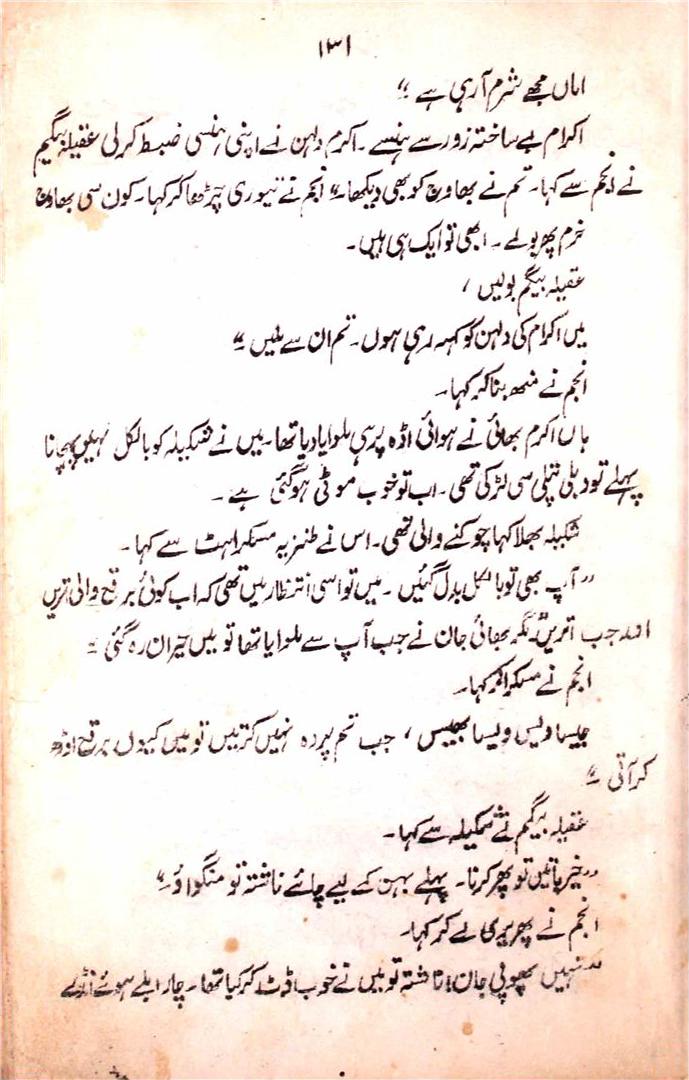 ۱۳۱
اماں مجھے شرم آ رہی ہے ‘‘
اکرام بے ساختہ زور سے ہنسے ۔ اکرم دلہن نے اپنی ہنسی ضبط کر لی عقیلہ بیگم
نے انجم سے کہا۔ تم نے بھاوج کو بھی دیکھا۔‘‘ انجم نے تیوری چڑھا کر کہا۔ کون سی بھاوج
خرم پھر بولے ۔ ابھی تو ایک ہی ہیں۔
عقیلہ بیگم بولیں ،
میں اکرام کی دلہن کو کہہ رہی ہوں۔ تم ان سے ملیں ‘‘
انجم نے منھ بنا کر کہا۔
ہاں اکرم بھائی نے ہوائی اڈہ پر ہی ملوایا دیا تھا۔ میں نے شکیلہ کو بالکل نہیں پہچانا
پہلے تو دبلی پتلی سی لڑکی تھی ۔ اب تو خوب موٹی ہو گئی ہے ۔
شکیلہ بھلا کہا چوکنے والی تھی۔ اس نے طنزیہ مسکراہٹ سے کہا ۔
’’ آپ بھی تو بالکل بدل گئیں ۔ میں تو اسی انتظار میں تھی کہ اب کوئی برقع والی اتریں
اور جب اتریں مگر بھائی جان نے جب آپ سے ملوایا تھا تو میں حیران رہ گئی ‘‘
انجم نے مسکرا کر کہا۔
جیسا دیس ویسا بھیس ، جب تم پردہ نہیں کرتیں تو میں کیوں برقع اوڑھ
کر آتی ‘‘
عقیلہ بیگم نے شکیلہ سے کہا۔
’’خیر باتیں تو پھر کرنا۔ پہلے بہن کے لیے چائے ناشتہ تو منگواؤ۔‘‘
انجم نے پھریری لے کر کہا۔
’’نہیں پھوپی جان! ناشتہ تو میں نے خوب ڈٹ کر کیا تھا۔ چار ابلے ہوئے انڈے